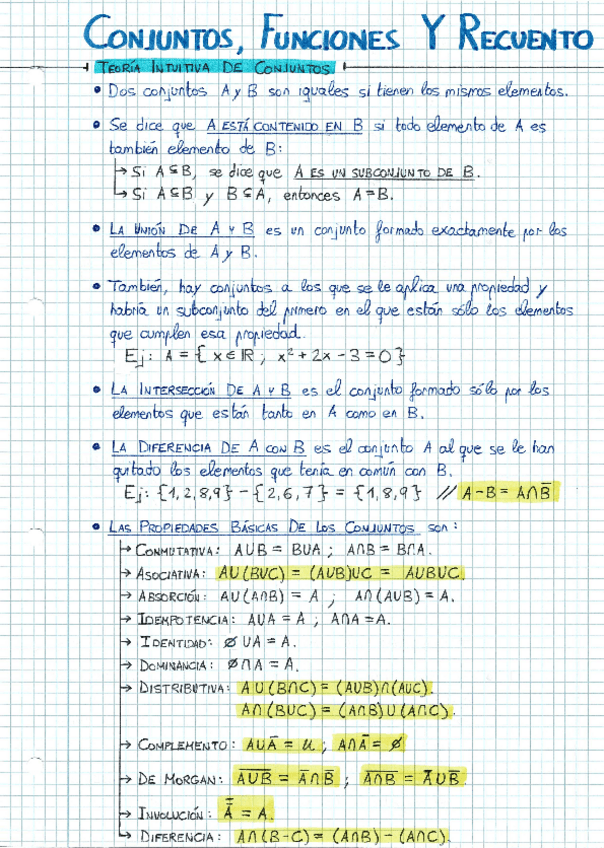 CONJUNTOS, FUNCIONES Y RECUENTO
TEORÍA INTUITIVA DE CONJUNTOS
• Dos conjuntos A y B son iguales si tienen los mismos elementos.
• Se dice que A ESTÁ CONTENIDO EN B si todo elemento de A es
también elemento de B:
→ Si A⊆B, se dice que A ES UN SUBCONJUNTO DE B.
→ Si A⊆B y B⊆A, entonces A=B.
• LA UNIÓN DE A Y B es un conjunto formado exactamente por los
elementos de A y B.
• También, hay conjuntos a los que se le aplica una propiedad y
habría un subconjunto del primero en el que están sólo los elementos
que cumplen esa propiedad.
Ej: A = { x∈ℝ ; x²+2x-3=0 }
• LA INTERSECCIÓN DE A Y B es el conjunto formado sólo por los
elementos que están tanto en A como en B.
• LA DIFERENCIA DE A CON B es el conjunto A al que se le han
quitado los elementos que tenía en común con B.
Ej: {1,2,8,9} - {2,6,7} = {1,8,9} // A-B = A∩B̅
• LAS PROPIEDADES BÁSICAS DE LOS CONJUNTOS son:
→ CONMUTATIVA: A∪B = B∪A ; A∩B = B∩A.
→ ASOCIATIVA: A∪(B∪C) = (A∪B)∪C = A∪B∪C.
→ ABSORCIÓN: A∪(A∩B) = A ; A∩(A∪B) = A.
→ IDEMPOTENCIA: A∪A = A ; A∩A = A.
→ IDENTIDAD: ∅∪A = A.
→ DOMINANCIA: ∅∩A = A.
→ DISTRIBUTIVA: A∪(B∩C) = (A∪B)∩(A∪C).
A∩(B∪C) = (A∩B)∪(A∩C).
→ COMPLEMENTO: A∪A̅ = U ; A∩A̅ = ∅
→ DE MORGAN: A̅∪̅B̅ = A̅∩B̅ ; A̅∩̅B̅ = A̅∪B̅.
→ INVOLUCIÓN: A̿ = A.
→ DIFERENCIA: A∩(B-C) = (A∩B) - (A∩C).